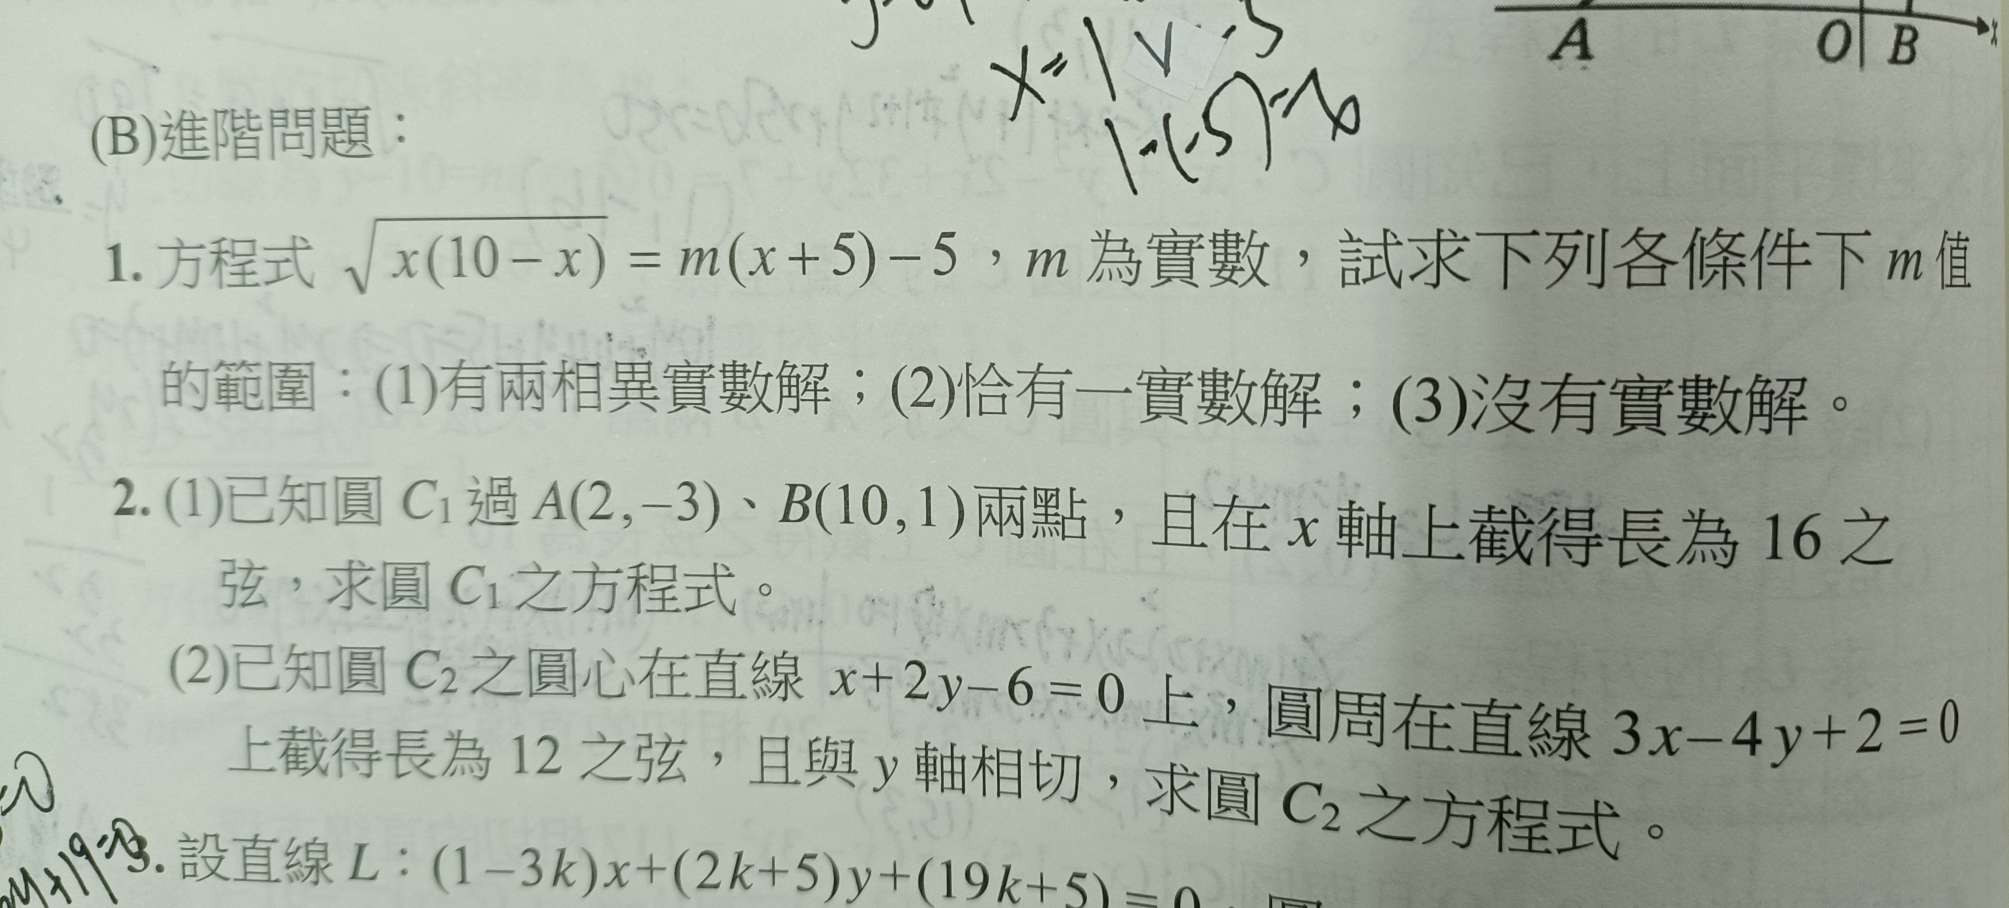 A O B x
x=1 V -5
1-(-5)=6
(B)進階問題：
1. 方程式 √x(10−x) = m(x+5)−5，m 為實數，試求下列各條件下 m 值
的範圍：(1)有兩相異實數解；(2)恰有一實數解；(3)沒有實數解。
2. (1)已知圓 C₁ 過 A(2,−3)、B(10,1)兩點，且在 x 軸上截得長為 16 之
弦，求圓 C₁ 之方程式。
(2)已知圓 C₂ 之圓心在直線 x+2y−6=0 上，圓周在直線 3x−4y+2=0
上截得長為 12 之弦，且與 y 軸相切，求圓 C₂ 之方程式。
3. 設直線 L：(1−3k)x+(2k+5)y+(19k+5)=0